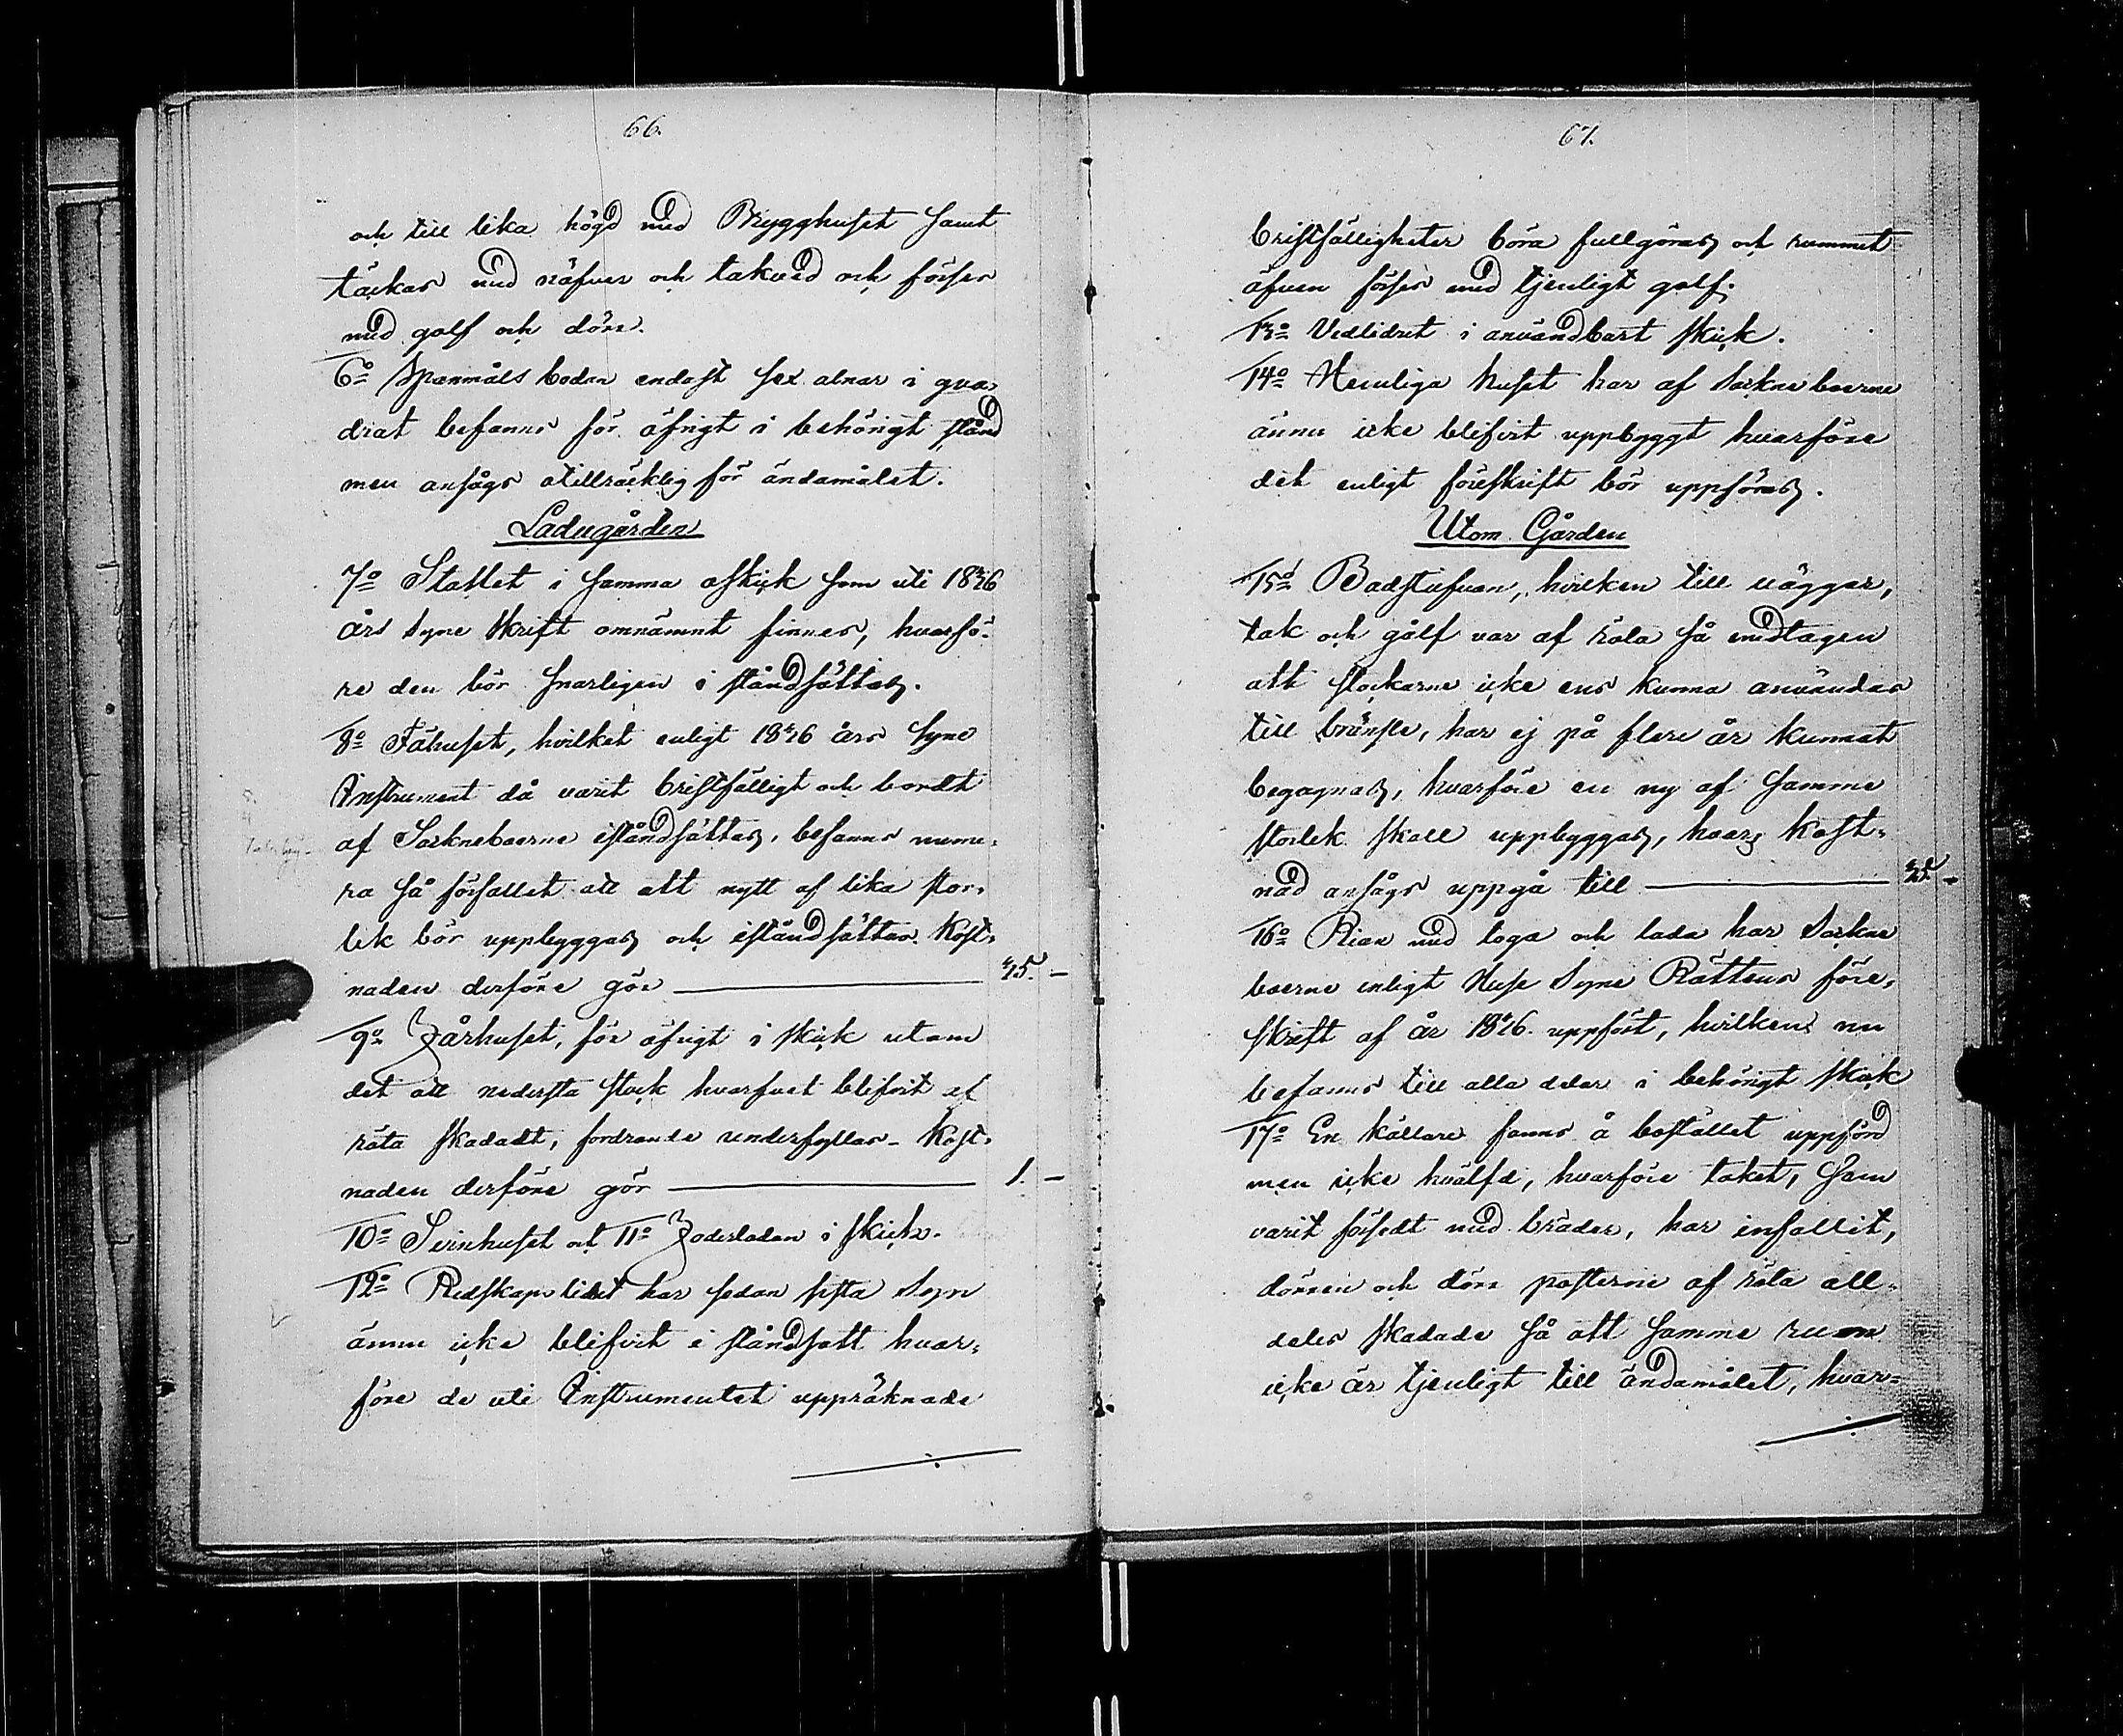 66.
och till lika högd med Brygghuset samt
täckas med näfver och takved och förses
med golf och dörr.
6o Spanmåls bodan endast sex alnar i qva-
drat befanns för öfrigt i behörigt stånd
men ansågs otillräcklig för ändamålet.
Ladugården
7o Stallet i samma oskick som uti 1826
års Syne Skrift omnämnt finnes, hvarfö-
re den bör snarligen i ståndsättas.
8o Fähuset, hvilket enligt 1826 års Syne
Instrument då varit bristfälligt och bordt
af Sockneboerne iståndsättas, befanns nume-
ra så förfallet att ett nytt af lika stor-
lek bör uppbyggas och iståndsättas. Kost-
naden derföre gör 25. -
9o Fårhuset, för öfrigt i skick utom
det att nedersta stock hvarfvet blifvit af
röta skadadt, fordrande underfyllas. Kost-
naden derföre gör 1. -
10o Svinhuset och 11o Foderladan i skick.
12o Redskaps lidret har sedan sista Syn
ännu icke blifvit i ståndsatt hvar-
före de uti Instrumentet uppräknade
67.
bristfälligheter böra fullgöras och rummet
äfven förses med tjenligt golf.
13o Vedlidret i användbart skick.
14o Hemliga huset har af Sockneboerne
ännu icke blifvit uppbyggt hvarföre
det enligt föreskrift bör uppföras.
Utom Gården
15o Badstufvan, hvilken till väggar,
tak och golf var af röta så medtagen
att stockarne icke ens kunna användas
till bränsle, har ej på flere år kunnat
begagnas, hvarföre en ny af samma
storlek skall uppbyggas, hvars kost-
nad ansågs uppgå till 25. -
16o Rian med loga och lada har Sockne
boerne enligt Huse Syne Rättens före-
skrift af år 1826. uppfört, hvilken nu
befanns till alla delar i behörigt skick
17o En källare fanns å bostället uppförd
men icke hvälfd, hvarföre taket, som
varit försedt med bräder, har infallit,
dörren och dörr posterne af röta all-
deles skadade så att samma rum
icke är tjenligt till ändamålet, hvar-